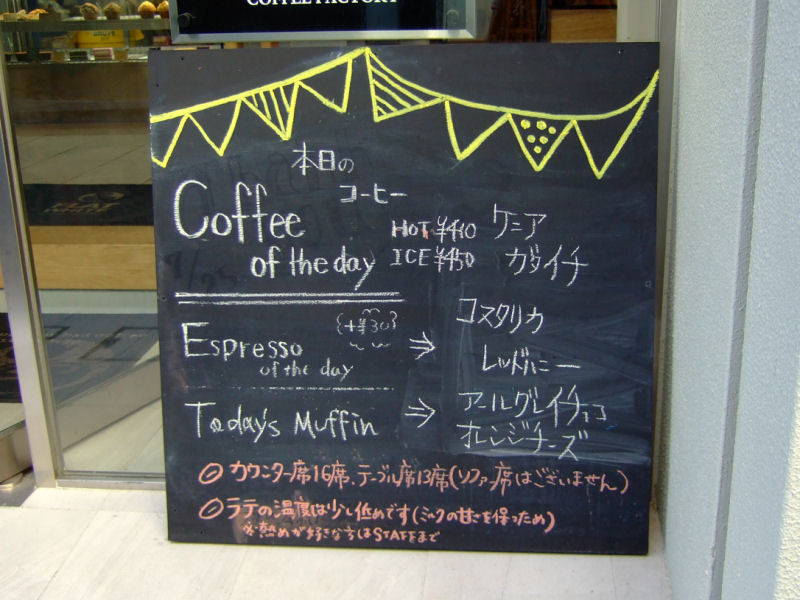 COFFEE FACTORY
本日の
コーヒー
Coffee
of the day
HOT ¥410 ケニア
ICE ¥450 ガタイチ
Espresso
of the day
{+¥30}
⇒ コスタリカ
レッドハニー
Today's Muffin ⇒ アールグレイチョコ
オレンジチーズ
◎カウンター席16席、テーブル席13席(ソファー席はございません)
◎ラテの温度は少し低めです(ミルクの甘さを保つため)
※熱めが好きな方はSTAFFまで